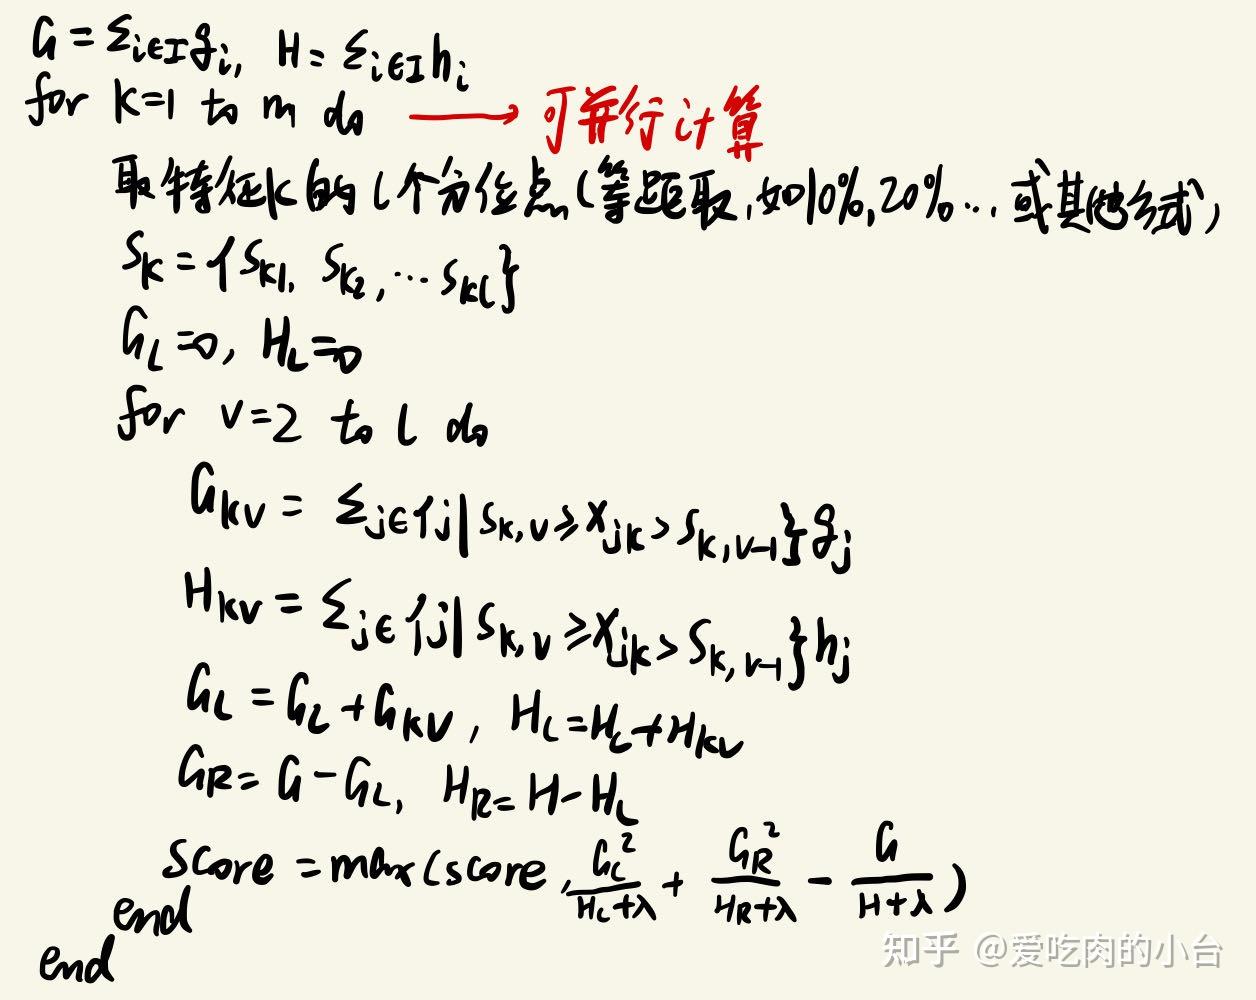 G = Σ_{i∈I} g_i, H = Σ_{i∈I} h_i
for k=1 to m do → 可并行计算
取特征k的l个分位点(等距取,如10%,20%... 或其他方式)
S_k = {S_{k1}, S_{k2}, ... S_{kl}}
G_L=0, H_L=0
for v=2 to l do
G_{kv} = Σ_{j∈{j|S_{k,v}≥X_{jk}>S_{k,v-1}}} g_j
H_{kv} = Σ_{j∈{j|S_{k,v}≥X_{jk}>S_{k,v-1}}} h_j
G_L = G_L + G_{kv}, H_L = H_L + H_{kv}
G_R = G - G_L, H_R = H - H_L
score = max(score, G_L^2/(H_L+λ) + G_R^2/(H_R+λ) - G/(H+λ))
end
end
知乎 @爱吃肉的小台